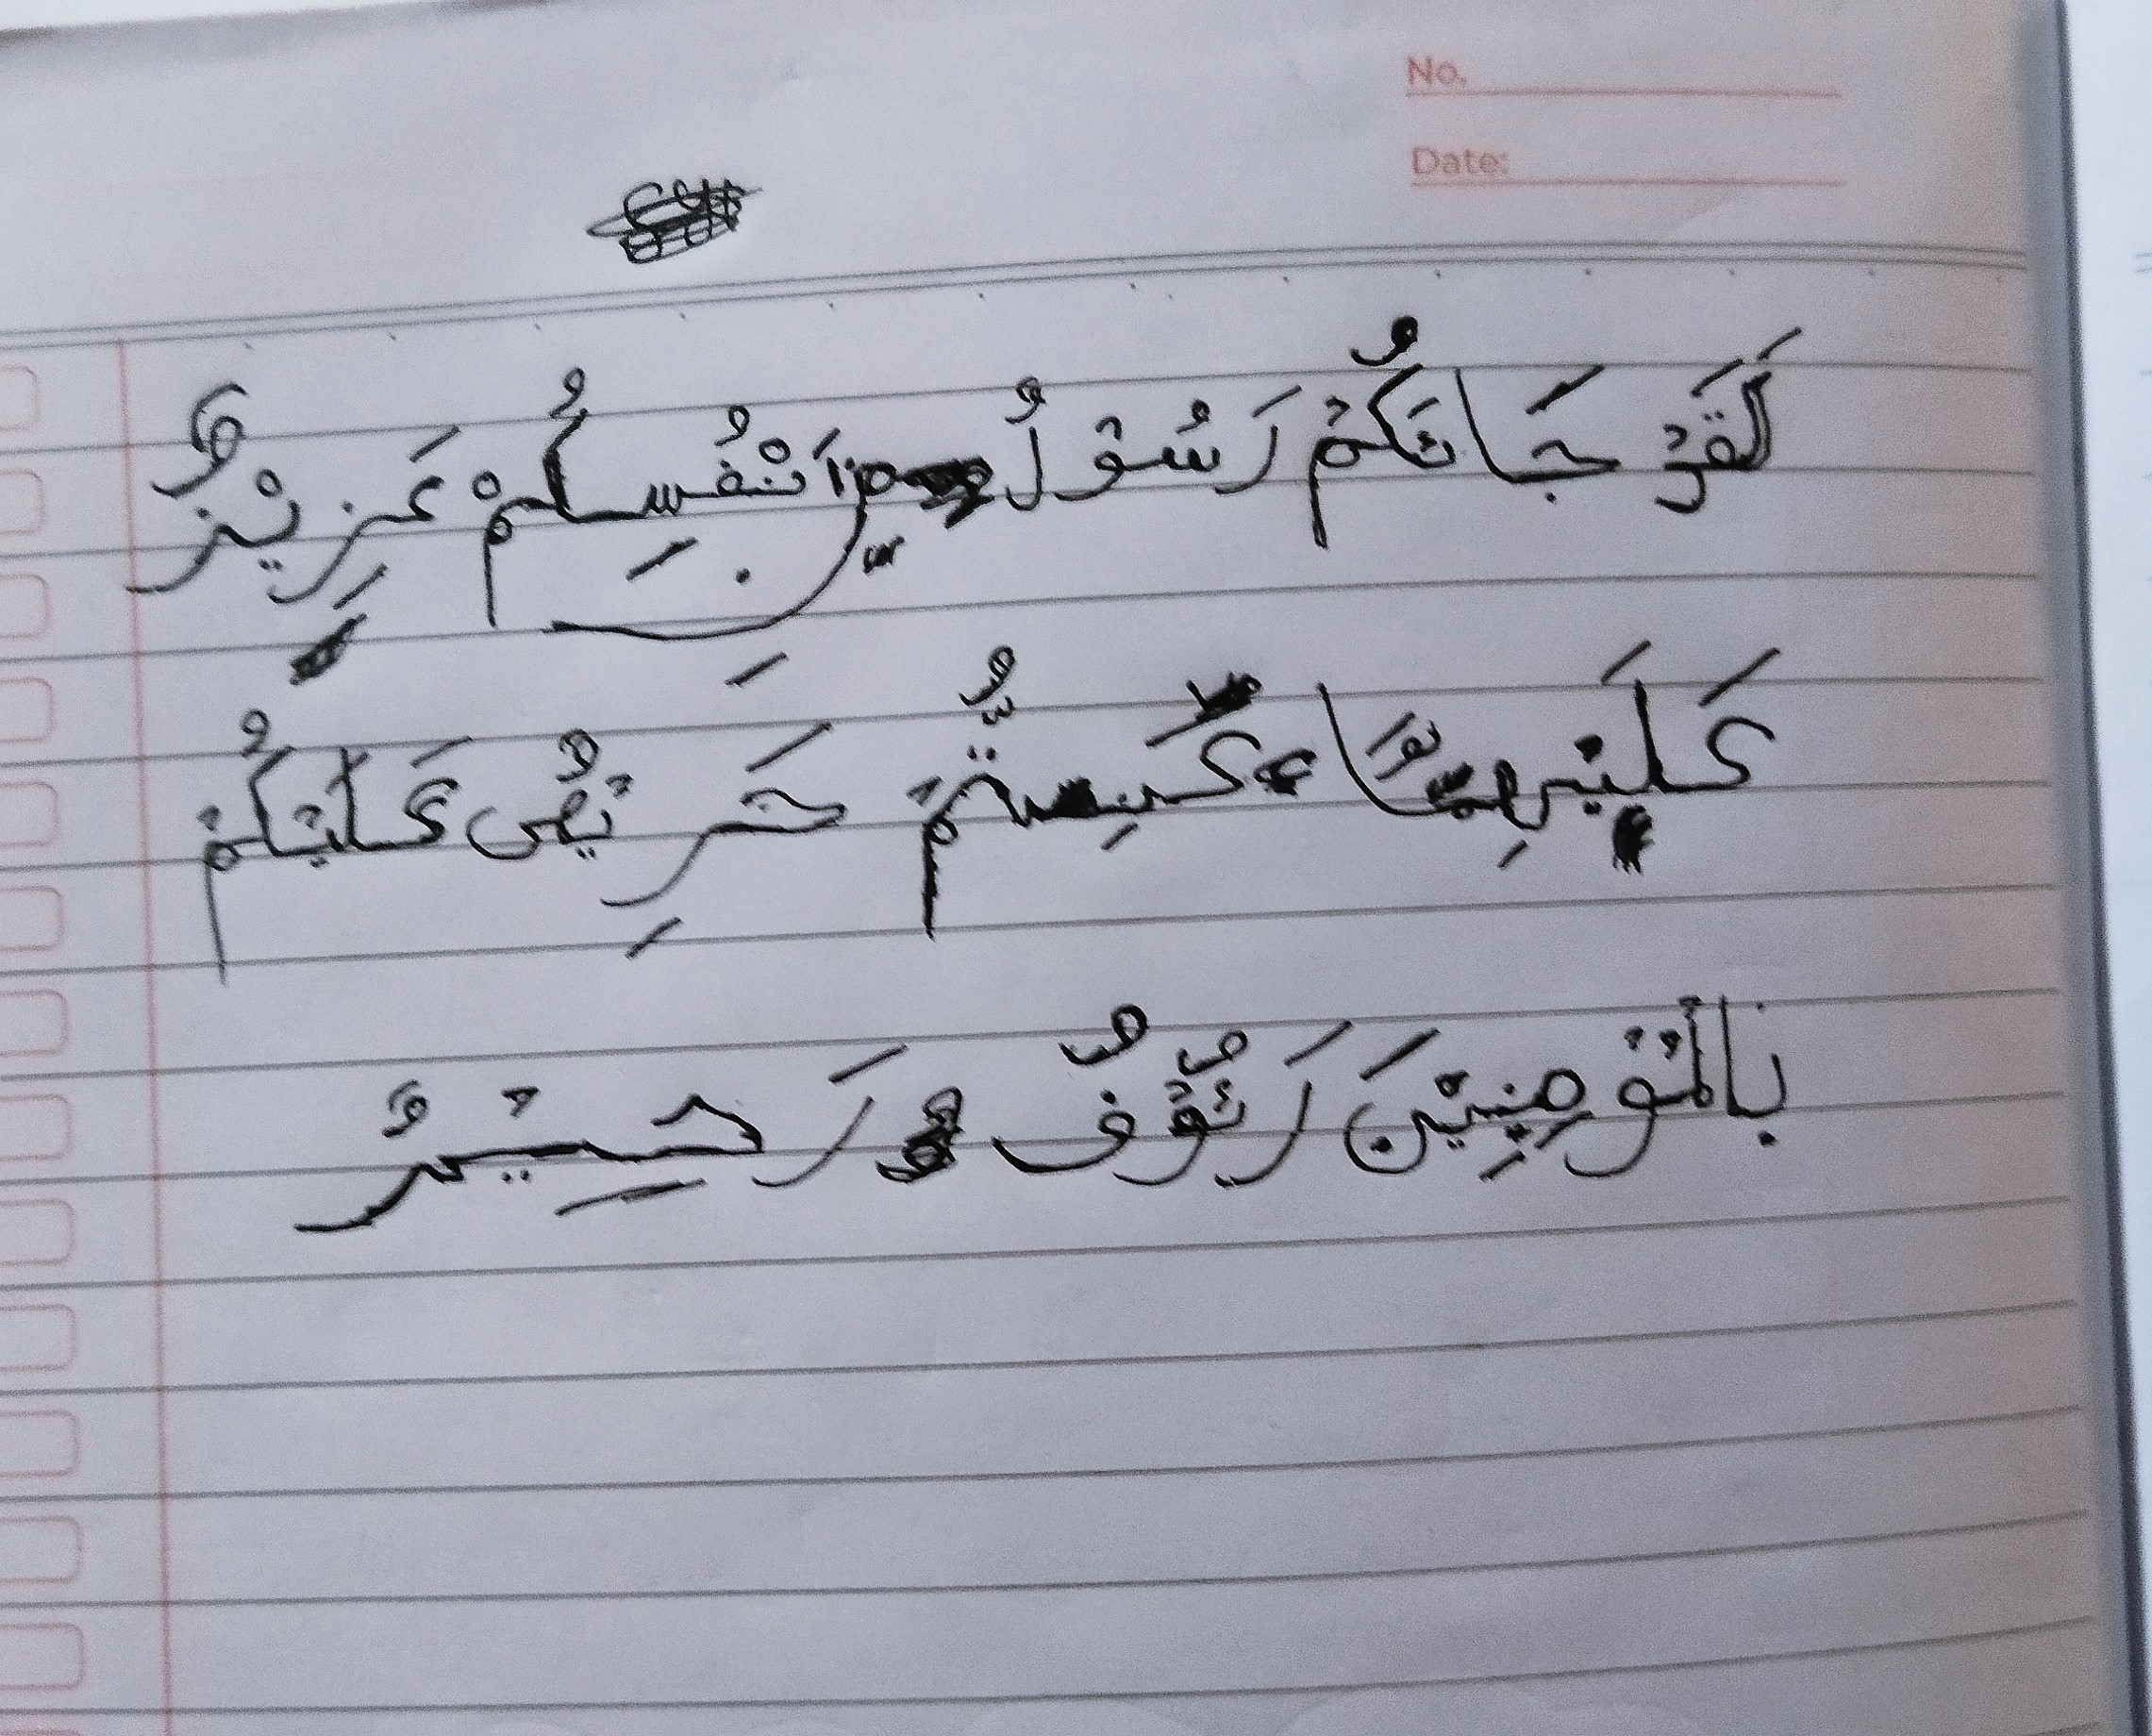 No.
Date:
لَقَدْ جَائَكُمْ رَسُوْلٌ مِنْ اَنْفُسِكُمْ عَزِيْزٌ
عَلَيْهِ مَا عَنِتُّمْ حَرِيْصٌ عَلَيْكُمْ
بِالْمُؤْمِنِيْنَ رَئُوْفٌ رَحِيْمٌ